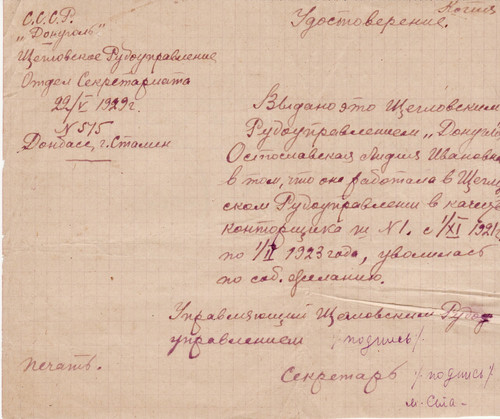 Копия
С.С.С.Р.
„Донуголь"
Щегловское Рудоуправление
Отдел Секретариата
22/V 1929 г.
N 575
Донбасс, г. Сталин
Удостоверение.
Выдано это Щегловским
Рудоуправлением „Донуг
Остославская Лидия Ивановна
в том, что она работала в Щегл
ском Рудоуправлении в качес
конторщика ш N1. с 1/XI 1921
по 1/II 1923 года, уволилась
по соб. желанию.
Управляющий Щегловским Рудо
управлением /подпись/.
печать.
Секретарь /подпись/.